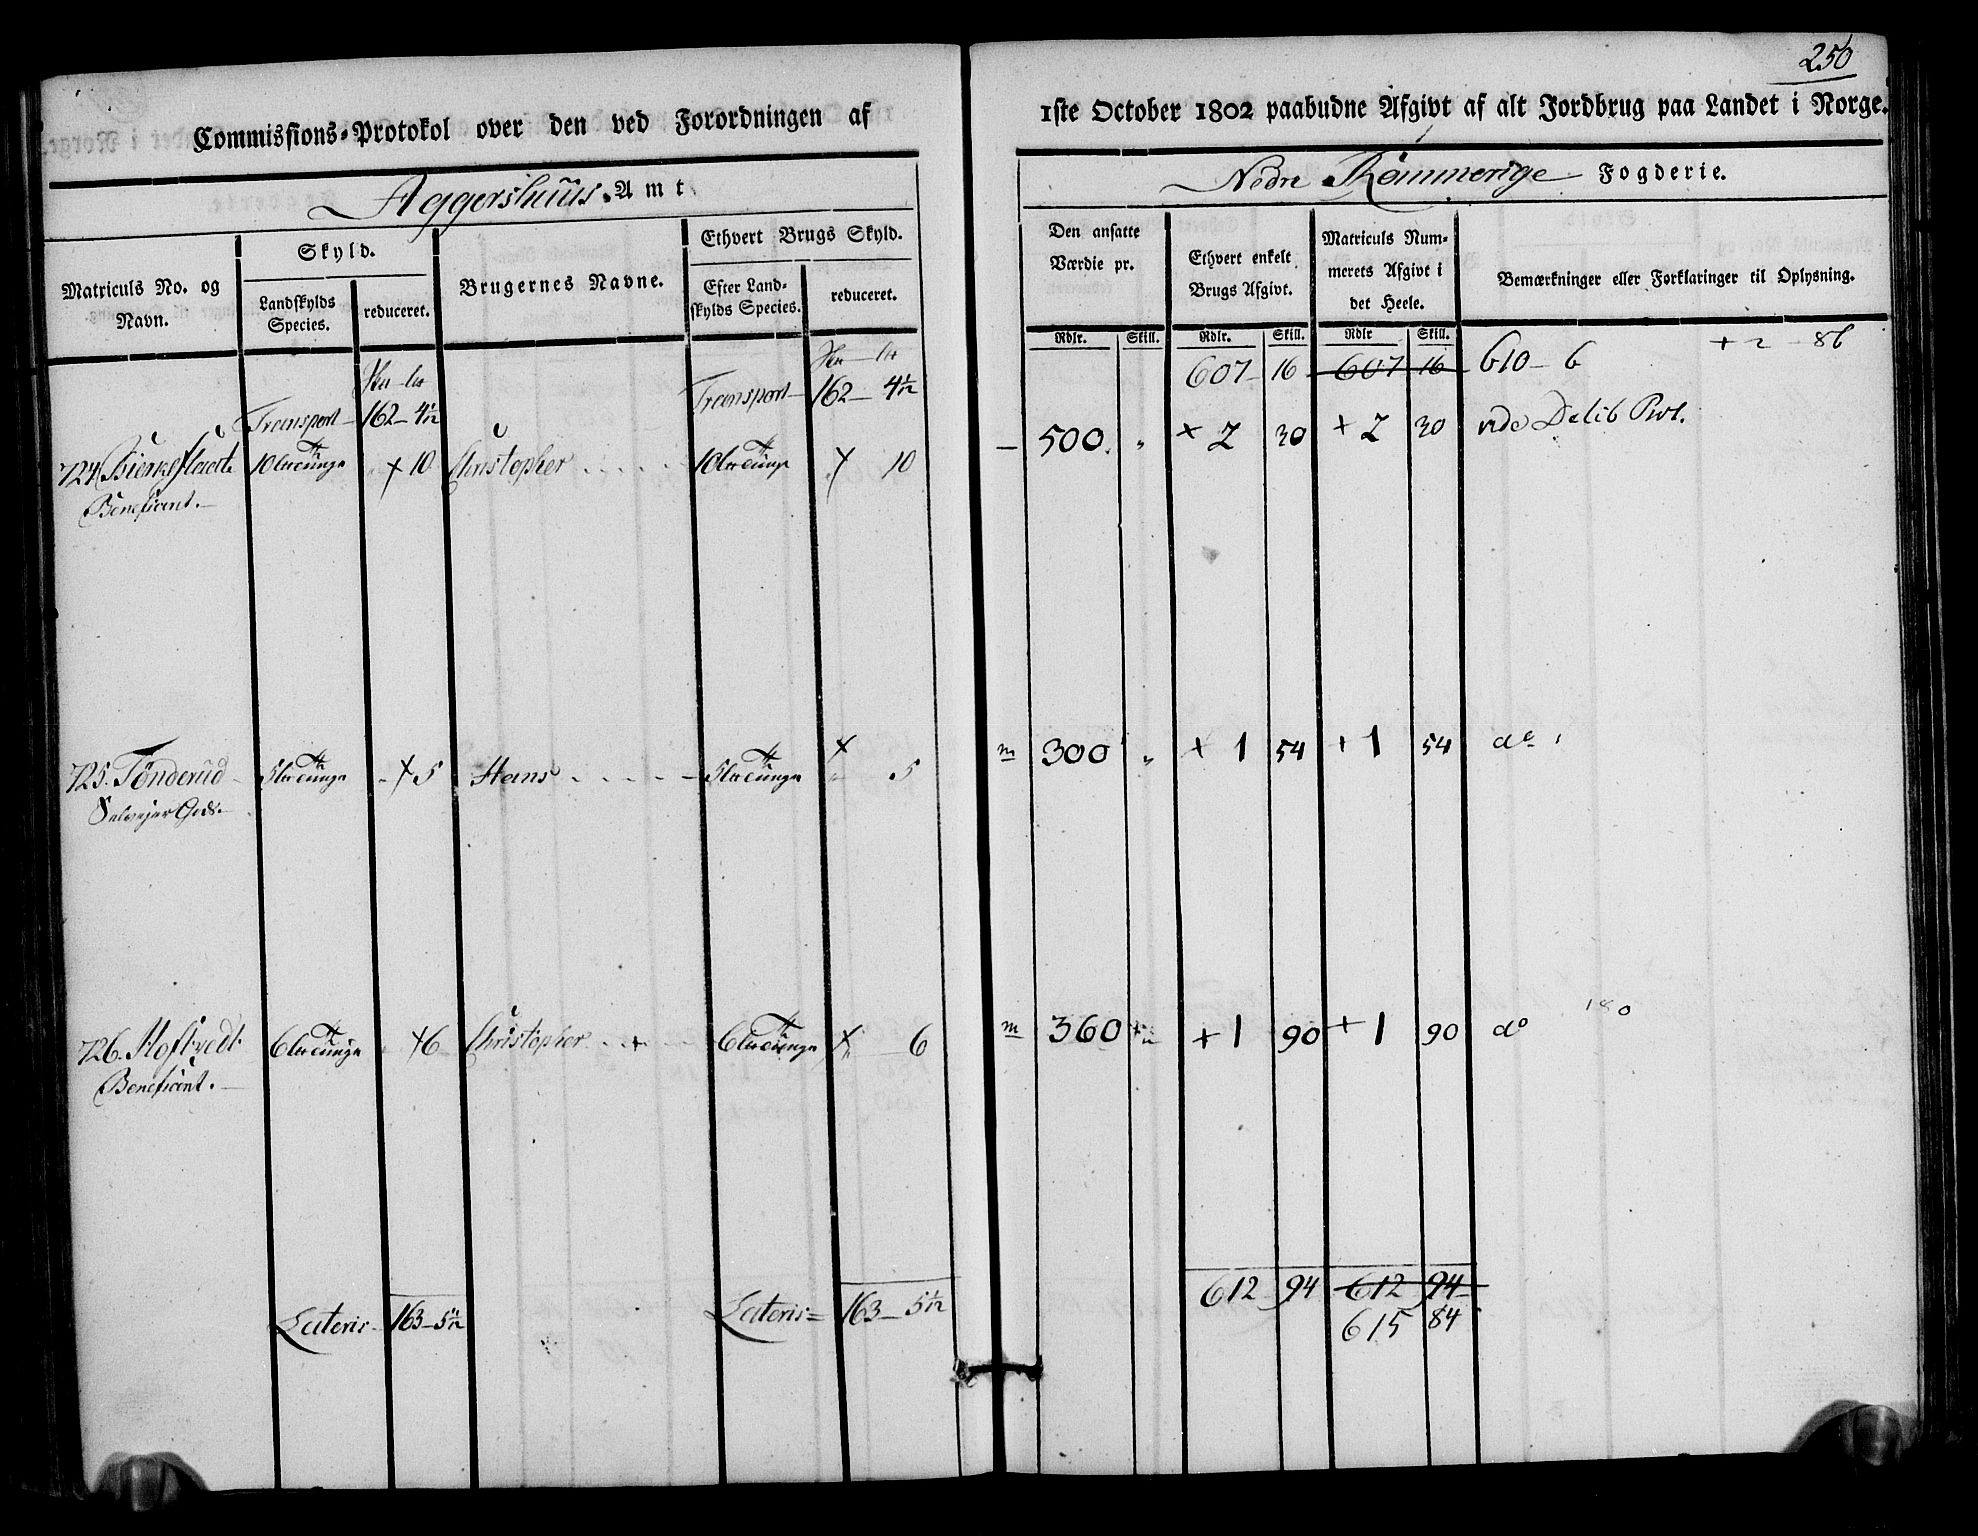 250
Commissions-Protokol over den ved Forordningen af
1ste October 1802 paabudne Afgivt af alt Jordbrug paa Landet i Norge.
Aggershuus Amt
Nedre Rommerige Fogderie.
Matriculs No. og Navn.
Skyld.
Landskylds Species.
reduceret.
Brugernes Navne.
Ethvert Brugs Skyld.
Efter Landskylds Species.
reduceret.
Den ansatte Værdie pr.
Ethvert enkelt Brugs Afgivt.
Matriculs Nummerets Afgivt i det Heele.
Bemærkninger eller Forklaringer til Oplysning.
Rdlr. Skill. Rdlr. Skill. Rdlr Skill.
Transport 162 - 4 1/2 Transport 162 - 4 1/2 607 - 16 607 16 610 - 6 + 2 - 86
724. 10 + 10 Christopher 10 10 500 " + 2 30 + 2 30 vide Delib Prot.
Beneficent.
725. Tønderud 5 + 5 Hans 5 + 5 300 " + 1 54 + 1 54 do
Selvejer Gods
726. 6 + 6 Christopher + 6 + 6 360 + 1 90 + 1 90 do 180
Beneficent.
Lateris 163 - 5 1/2 Lateris 163 - 5 1/2 612 94 612 94
615 84